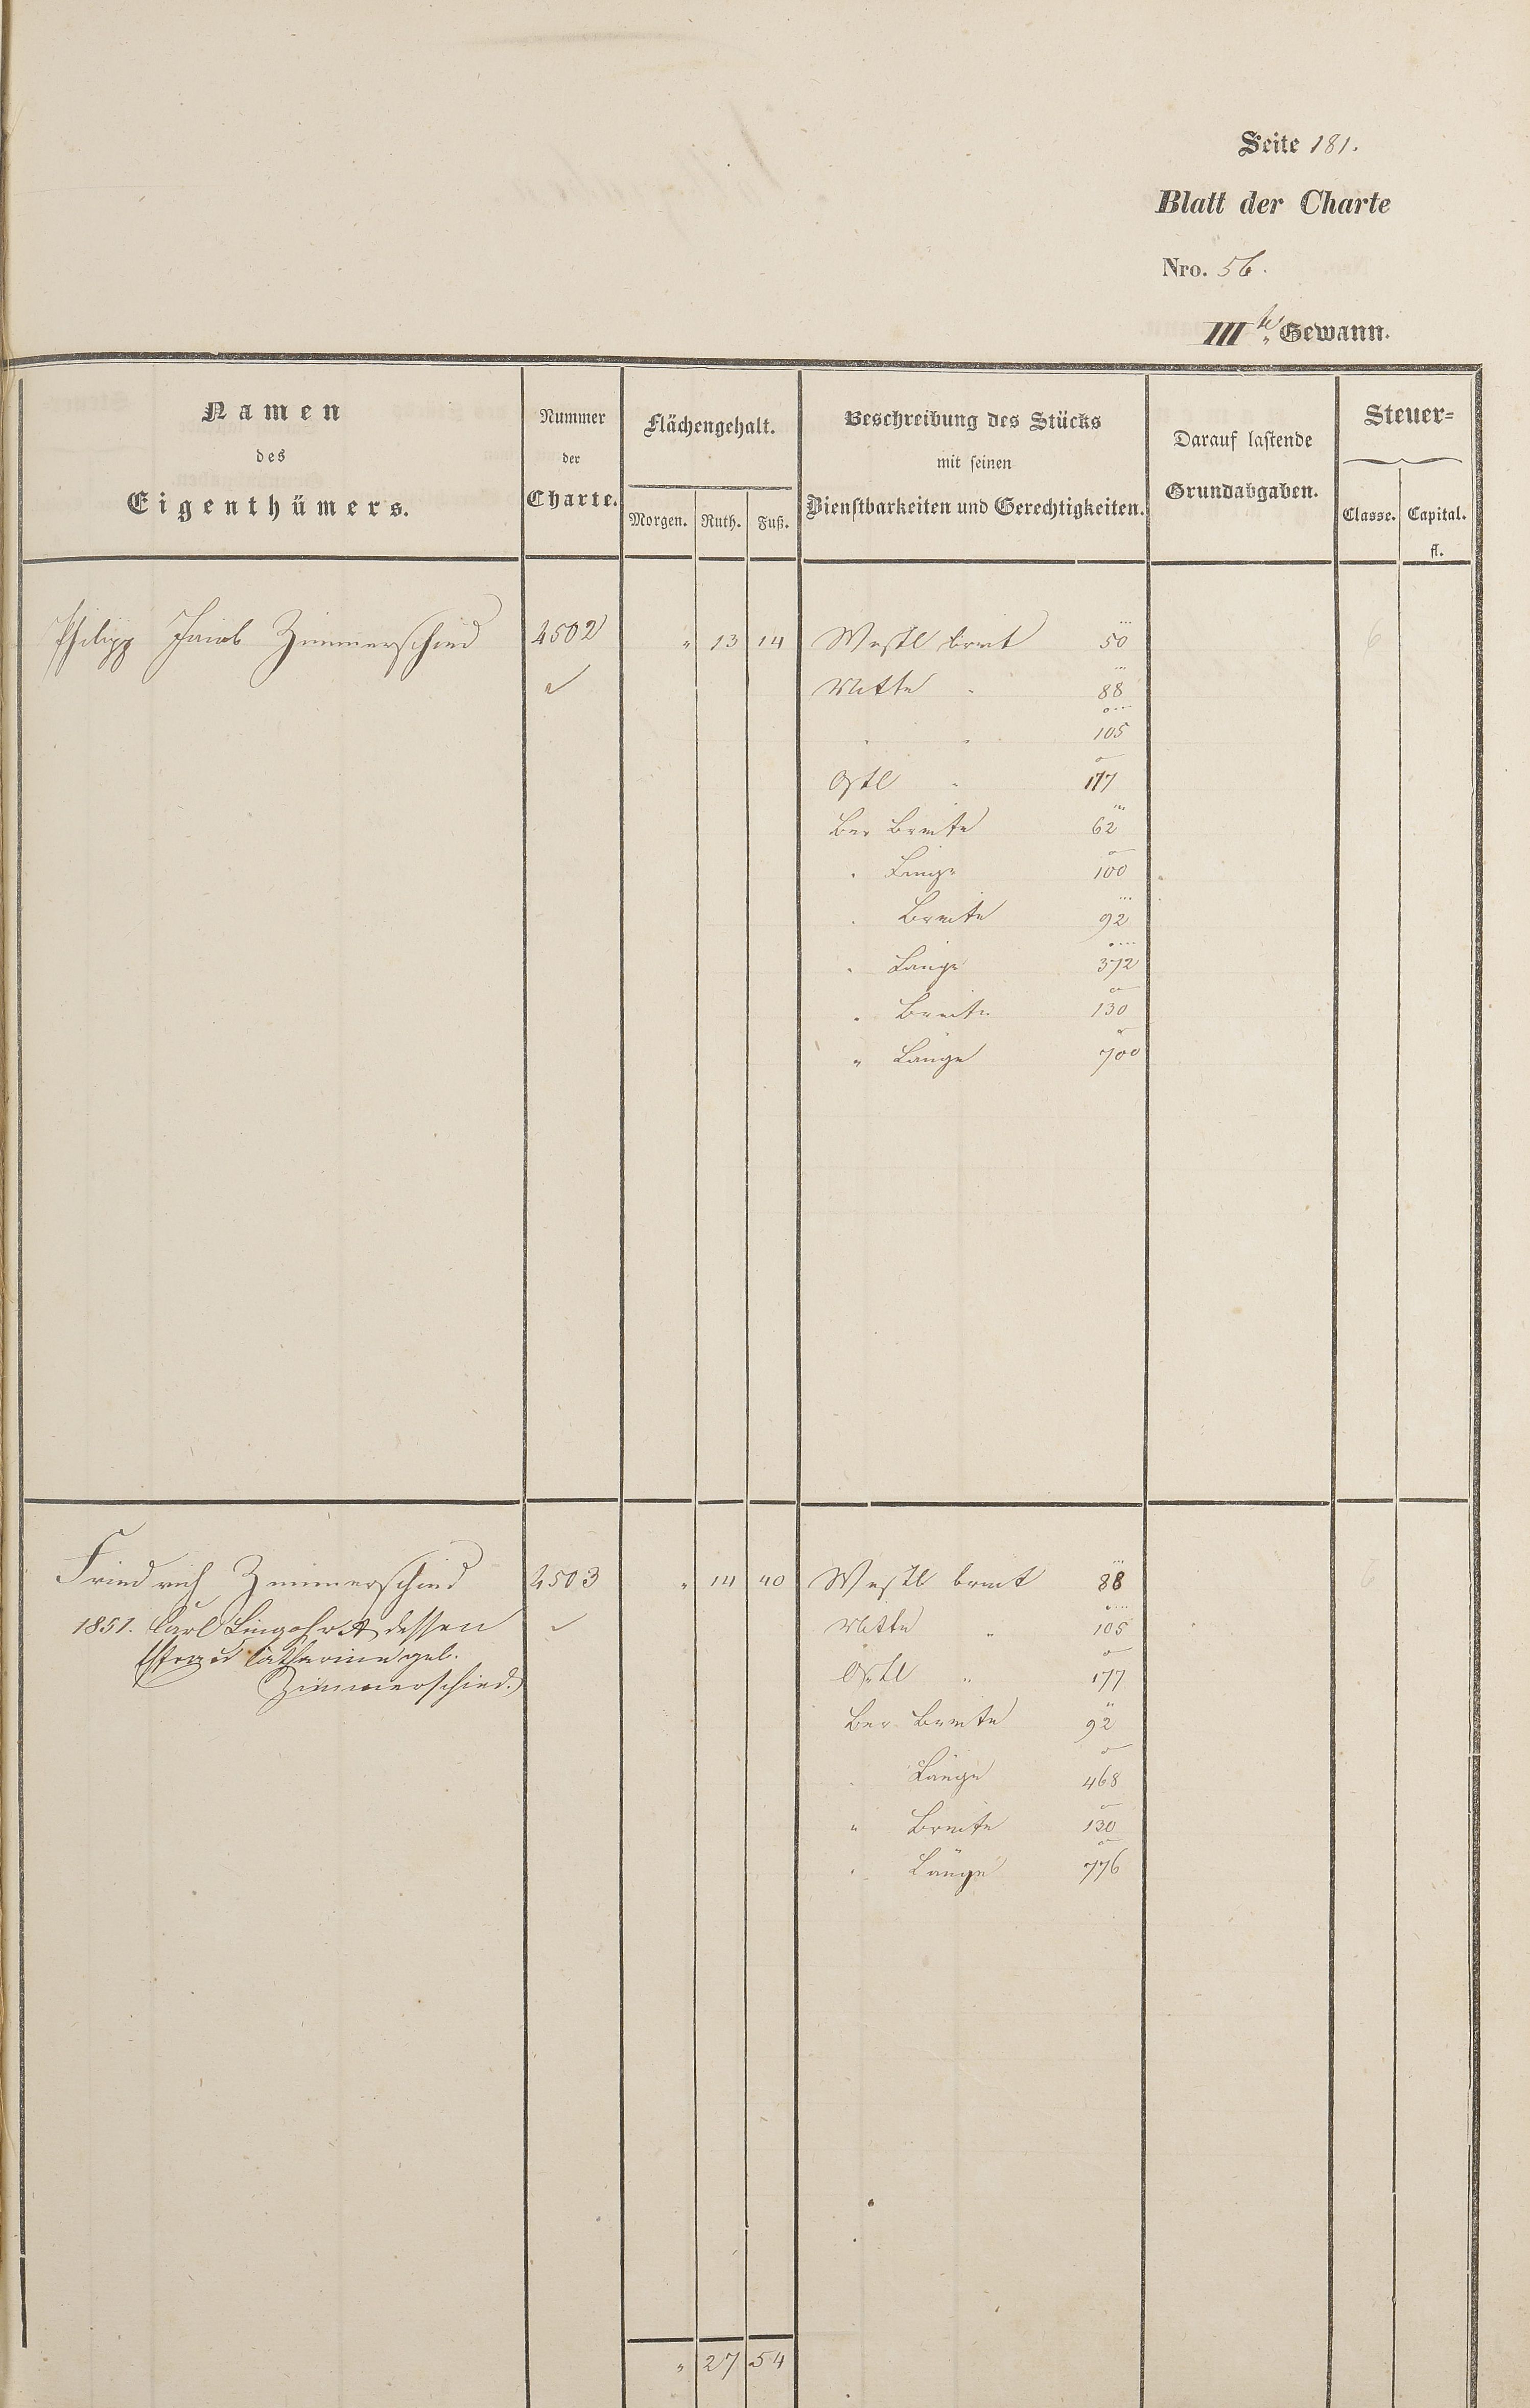 Seite 181.
Blatt der Charte
Nro. 56.
III te Gewann.
Namen
des
Eigenthümers.
Nummer
der
Charte.
Flächengehalt.
Morgen. Ruth. Fuß.
Beschreibung des Stücks
mit seinen
Dienstbarkeiten und Gerechtigkeiten.
Darauf lastende
Grundabgaben.
Steuer=
Classe. Capital.
fl.
Philipp Jacob Zimmerschied 4502 " 13 14 Westl breit 50 6
Mitte " 88
" " 105
Ostl " 177
Ber Breite 62
" Länge 100
" Breite 92
" Länge 372
" Breite 130
" Länge 700
Friedrich Zimmerschied 4503 " 14 40 Westl breit 88
1851. Carl Lingohr & dessen Mitte " 105
Catharine geb. Ostl " 177
Zimmerschied.
Ber Breite 92
" Länge 468
" Breite 130
" Länge 776
" 27 54